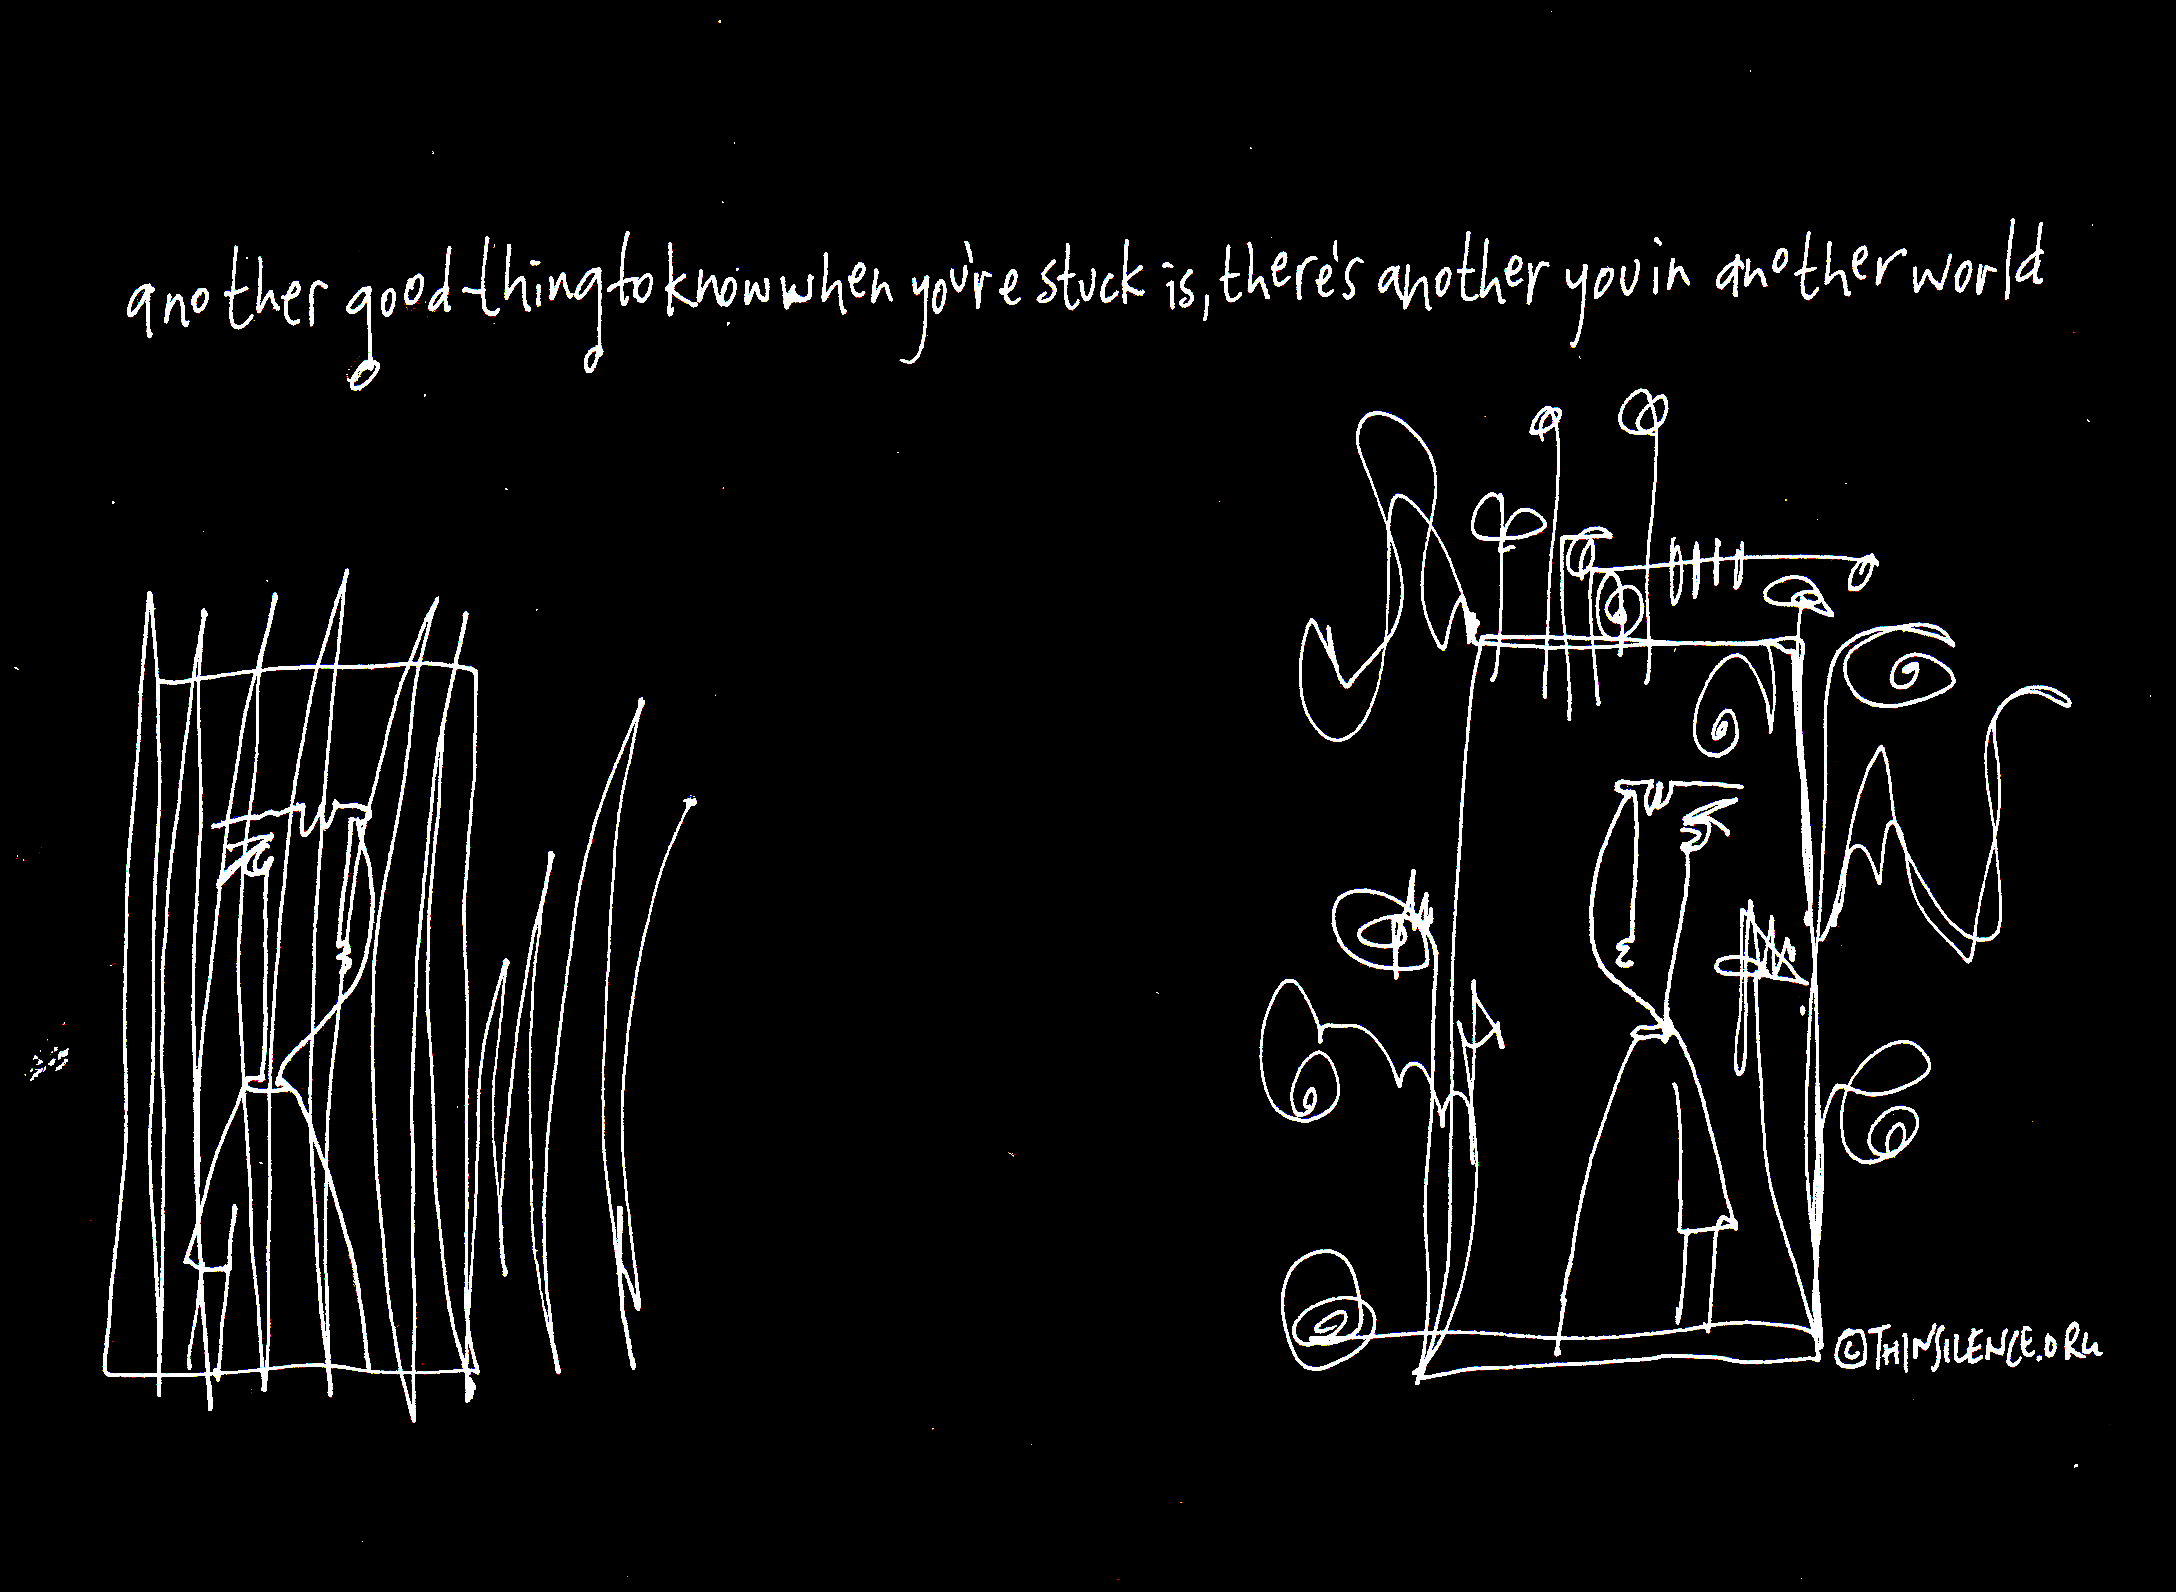 another good thing to know when you're stuck is, there's another you in another world
©THINSILENCE.ORG